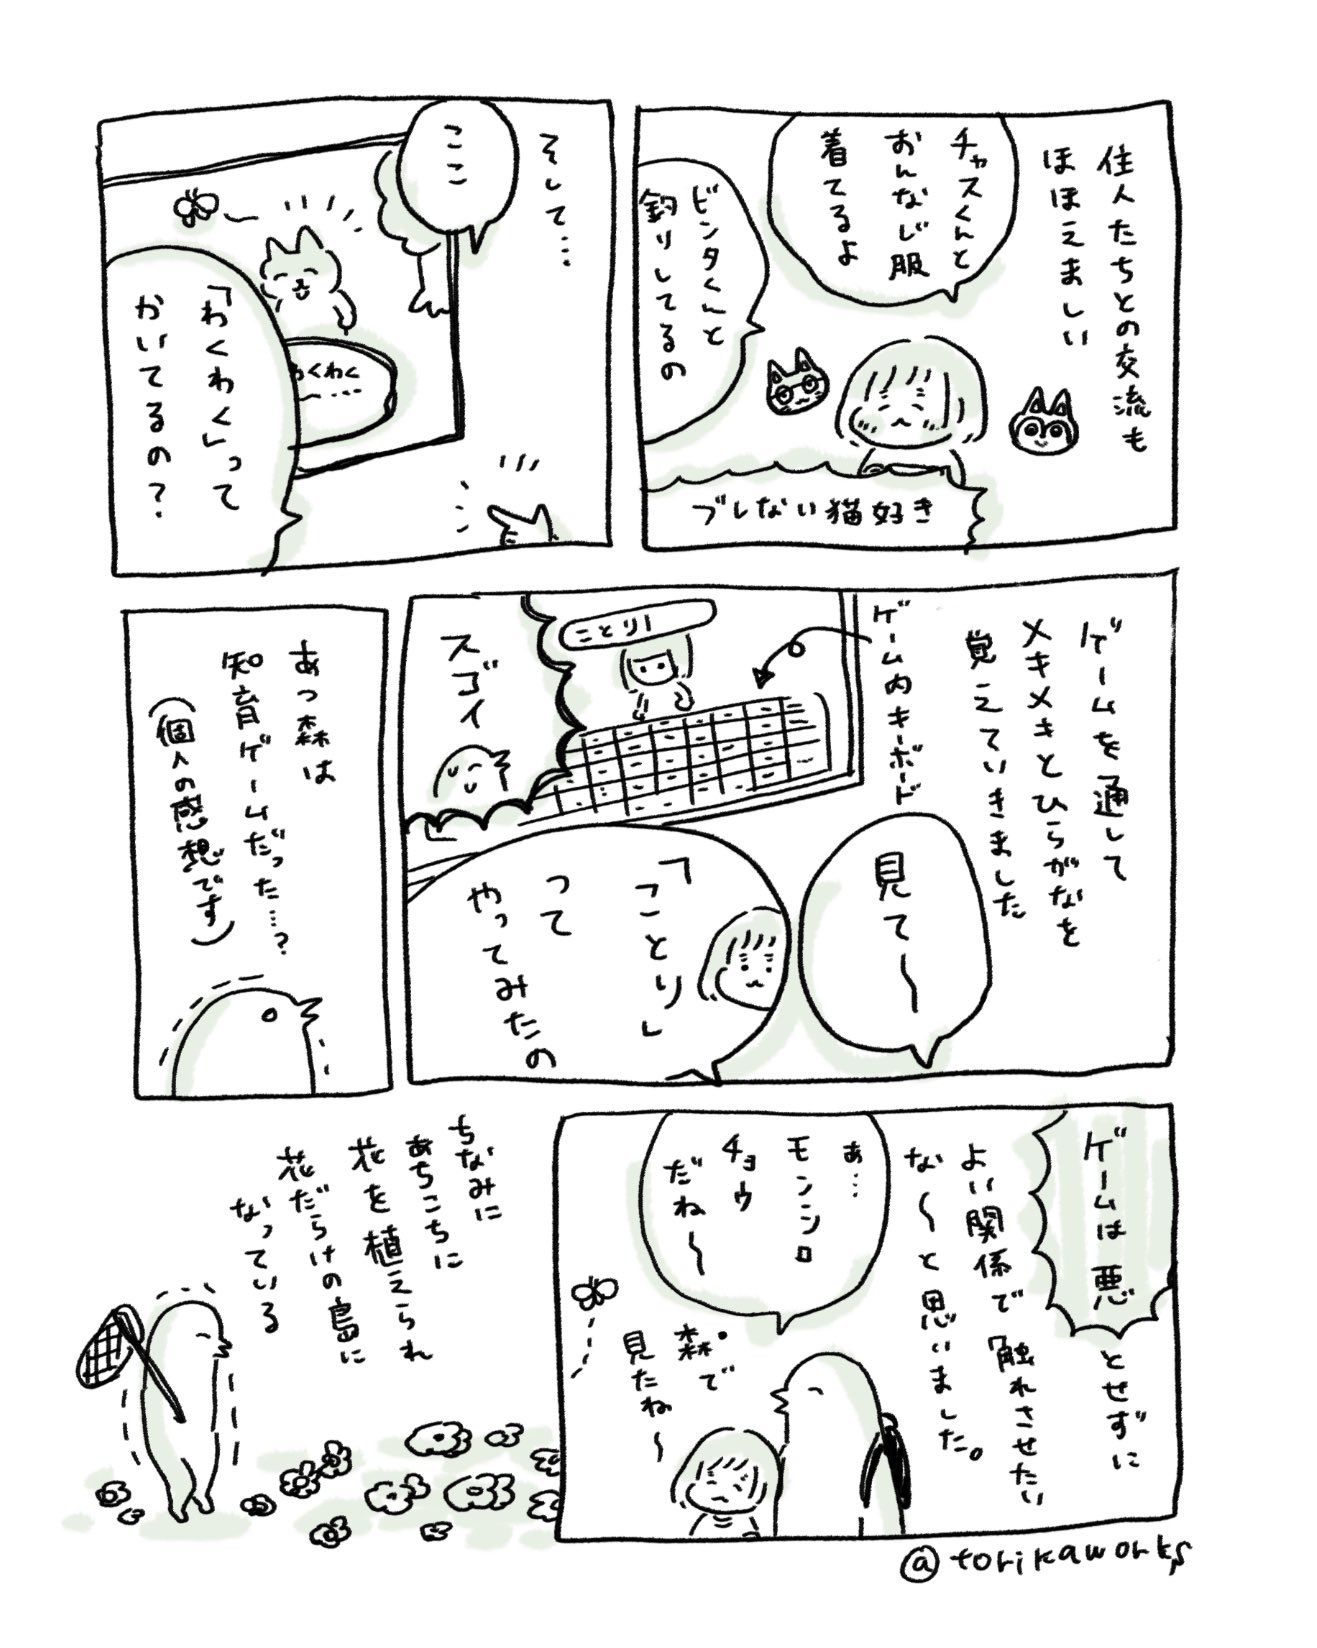 住人たちとの交流も
ほほえましい
チャスくんと
おんなじ服
着てるよ
ビンタくんと
釣りしてるの
ブレない猫好き
そして…
ここ
わくわく
「わくわく」って
かいてるの？
ゲームを通して
メキメキとひらがなを
覚えていきました
ゲーム内キーボード
ことり
スゴイ
見て〜
「ことり」
って
やってみたの
あつ森は
知育ゲームだった…？
（個人の感想です）
ゲームは悪とせずに
よい関係で触れさせたい
な〜と思いました。
あ…
モンシロ
チョウ
だね〜
森で
見たね〜
ちなみに
あちこちに
花を植えられ
花だらけの島に
なっている
@torikaworks